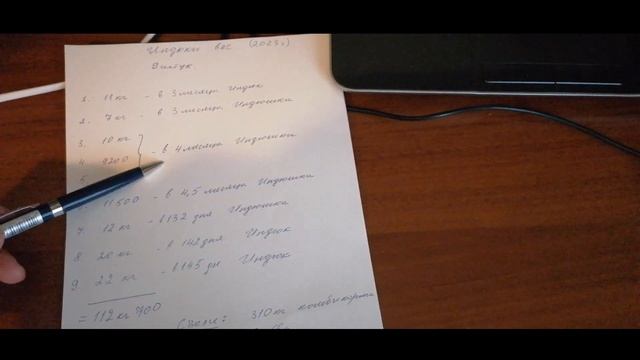 Индюки вес (2023г)
9 штук
1. 11 кг - в 3 месяца Индюк
2. 7 кг - в 3 месяца Индюшки
3. 10 кг
4. 9200 - в 4 месяца Индюшки
5.
11500 - в 4,5 месяца Индюшки
7. 12 кг - в 132 дня Индюшка
8. 20 кг - в 142 дня Индюк
9. 22 кг - в 145 дн Индюк
= 112 кг 700
310 кг комбикорма